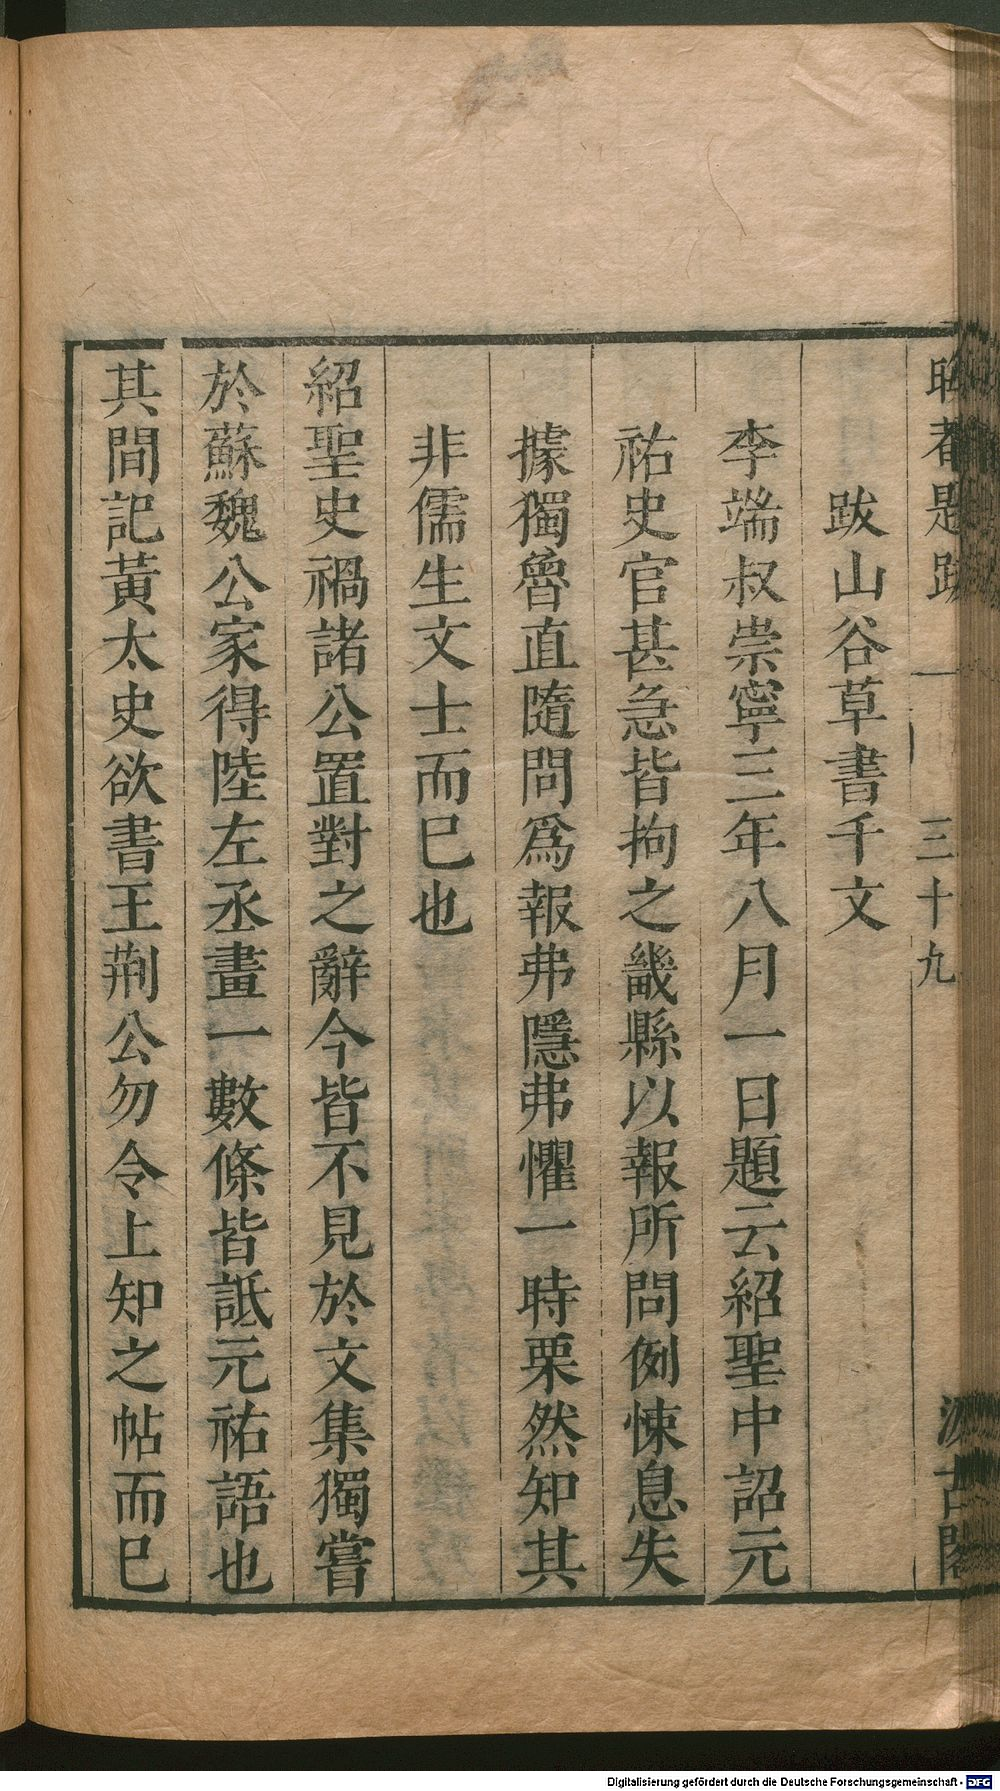 跋山谷草書千文
李端叔崇寧三年八月一日題云紹聖中詔元
祐史官甚急皆拘之畿縣以報所問例悚息失
據獨魯直隨問爲報弗隱弗懼一時栗然知其
非儒生文士而已也
紹聖史禍諸公置對之辭今皆不見於文集獨嘗
於蘇魏公家得陸左丞畫一數條皆詆元祐語也
其間記黃太史欲書王荆公勿令上知之帖而已
題跋 一 三十九 汲古閣
Digitalisierung gefördert durch die Deutsche Forschungsgemeinschaft - DFG